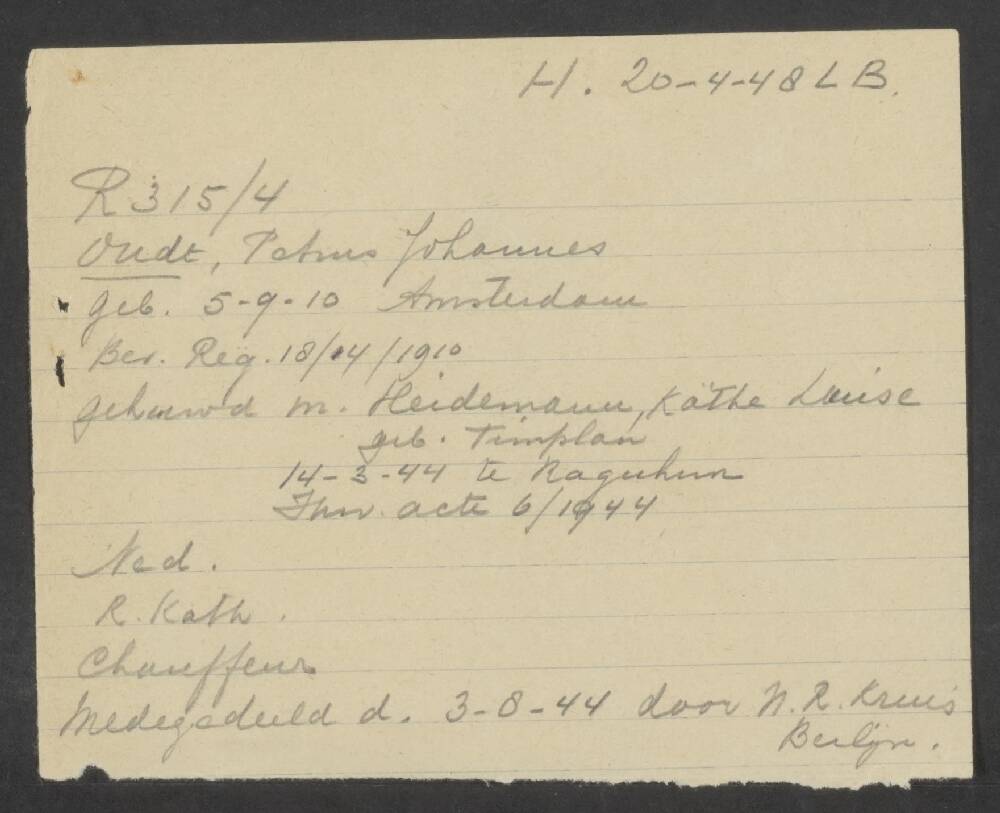 H. 20-4-48 L B.
R 315/4
Oudt, Petrus Johannes
geb. 5-9-10 Amsterdam
Bev. Reg. 18/04/1910
gehuwd m. Heidemann, Käthe Louise
geb. Timplan
14-3-44 te Raguhun
Huw. acte 6/1944
Ned.
R. Kath.
Chauffeur
Medegedeeld d. 3-8-44 door N. R. Kruis
Berlijn.